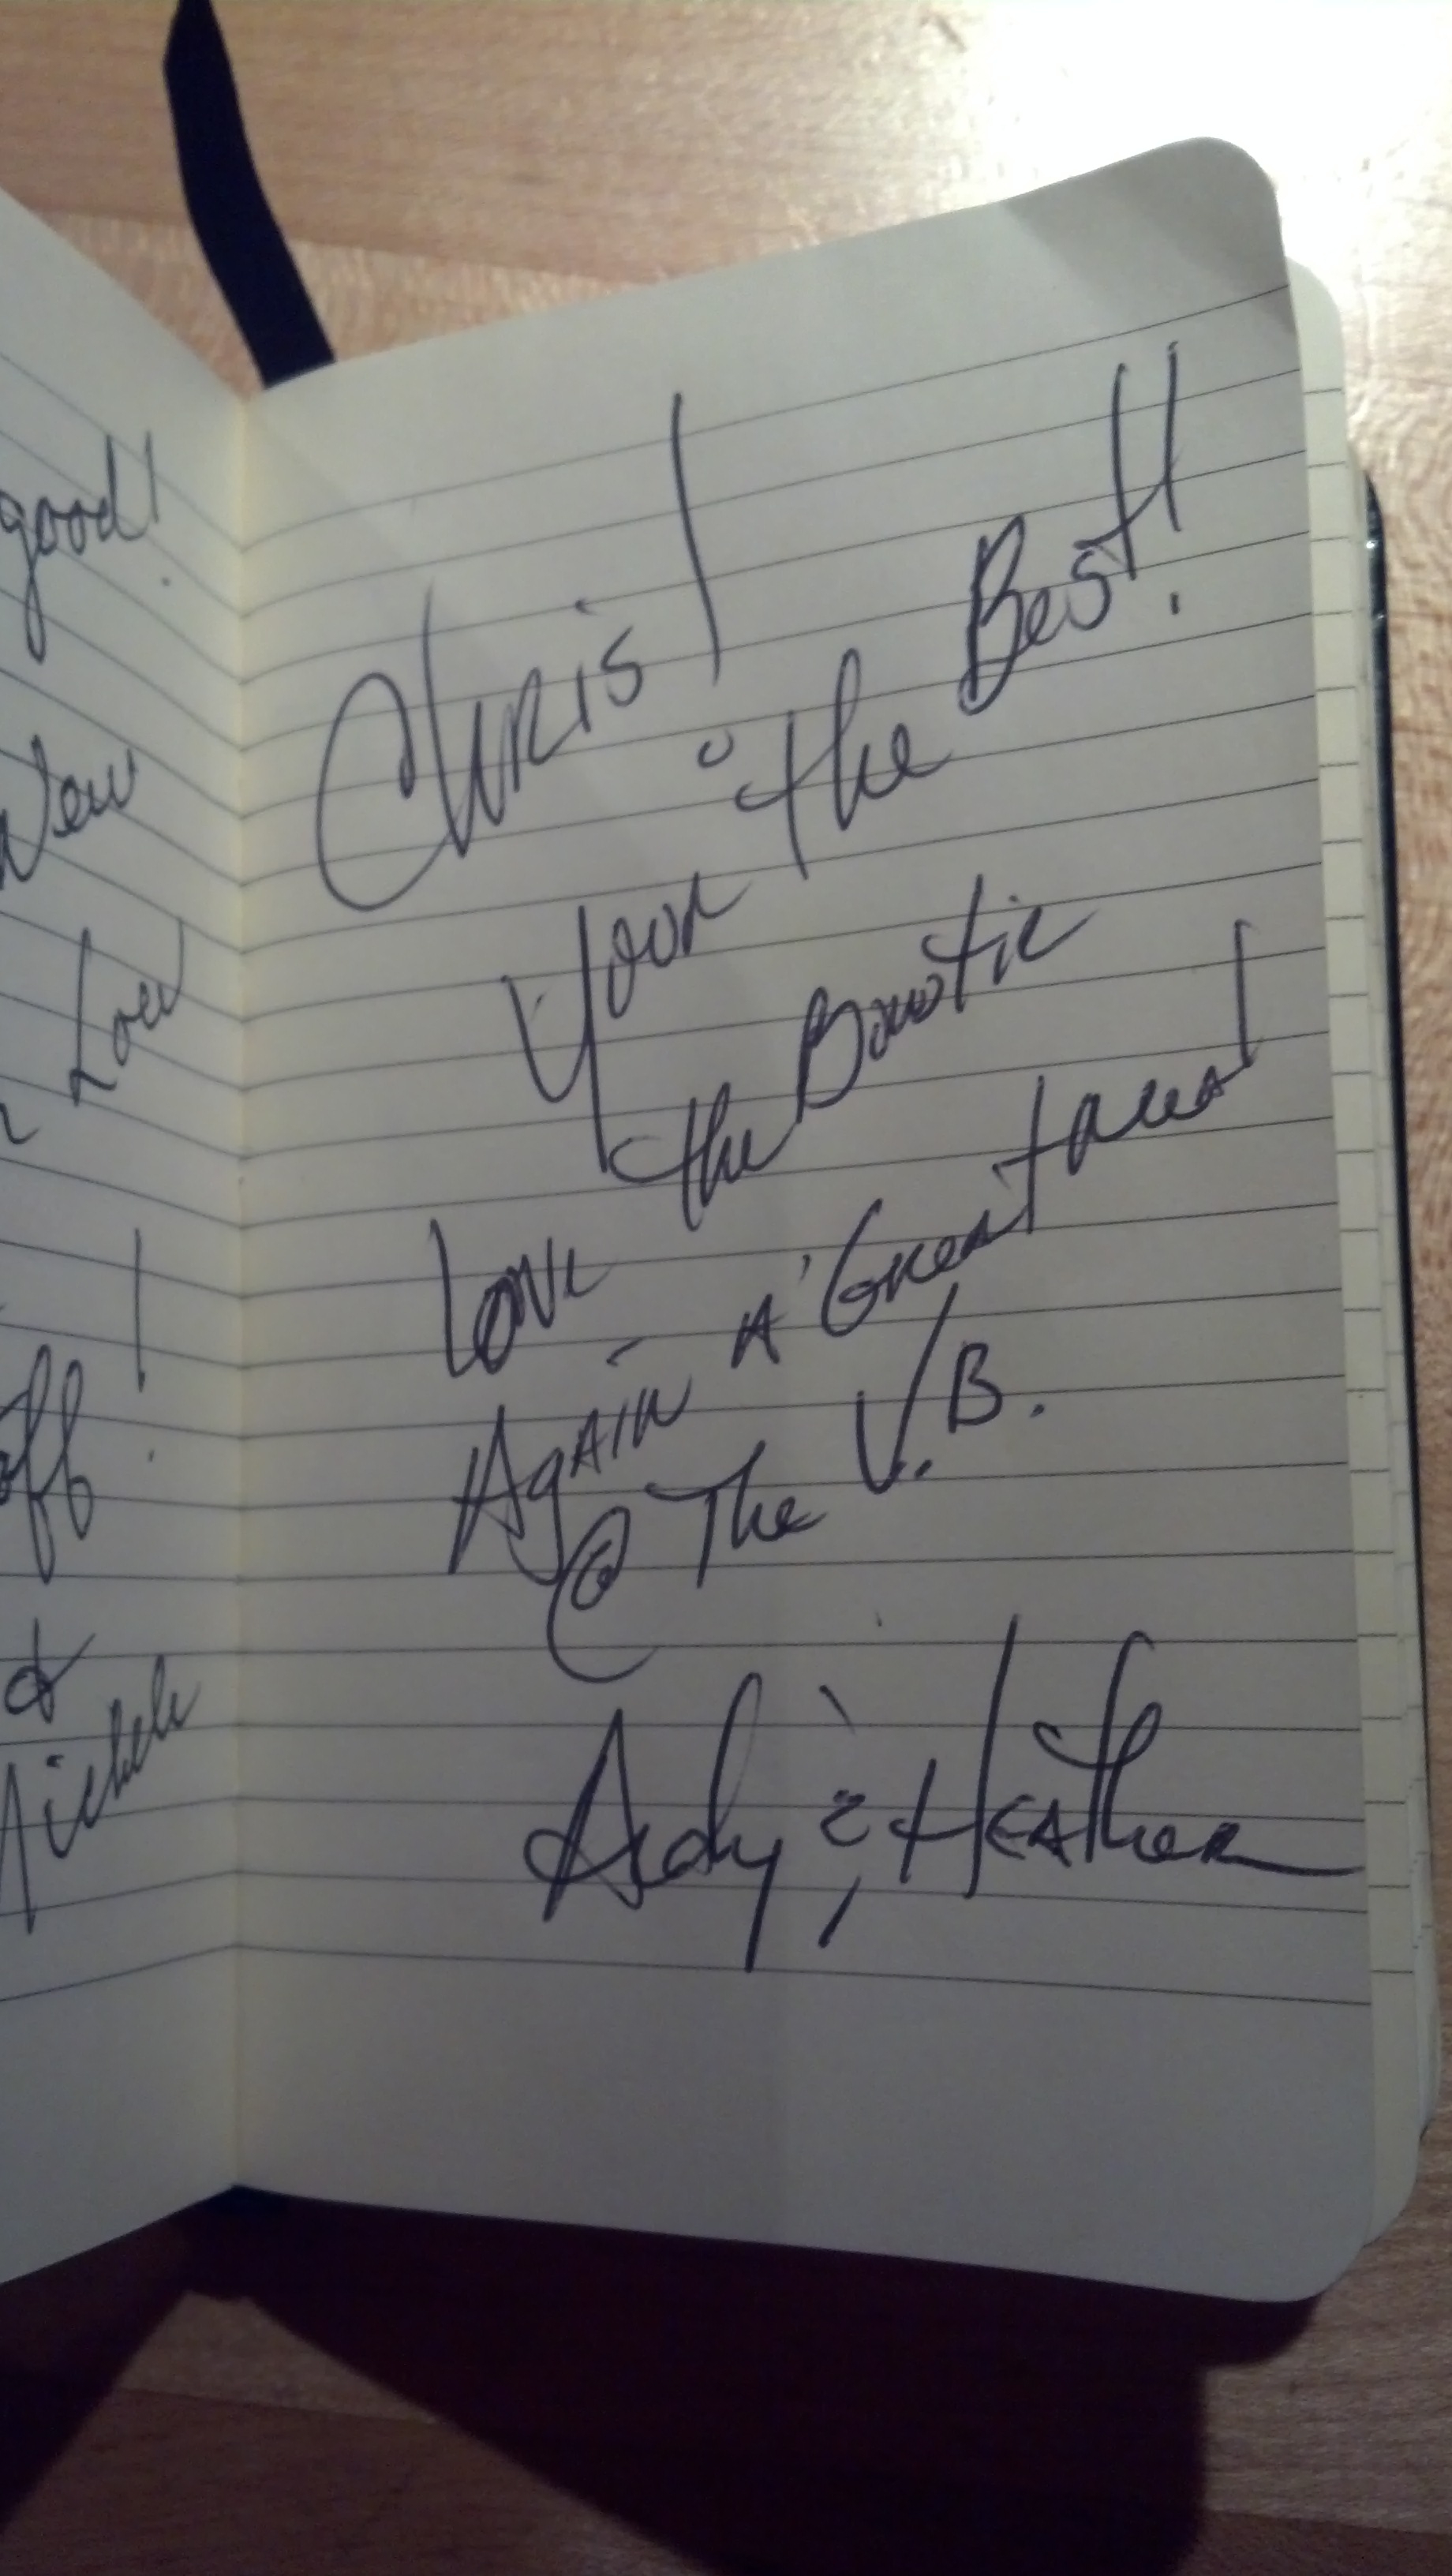 good!
New
Low
off!
&
Michele
Chris!
Your the Best!!
Love the Bowtie
Again A Great
@ The V.B.
Andy & Heather